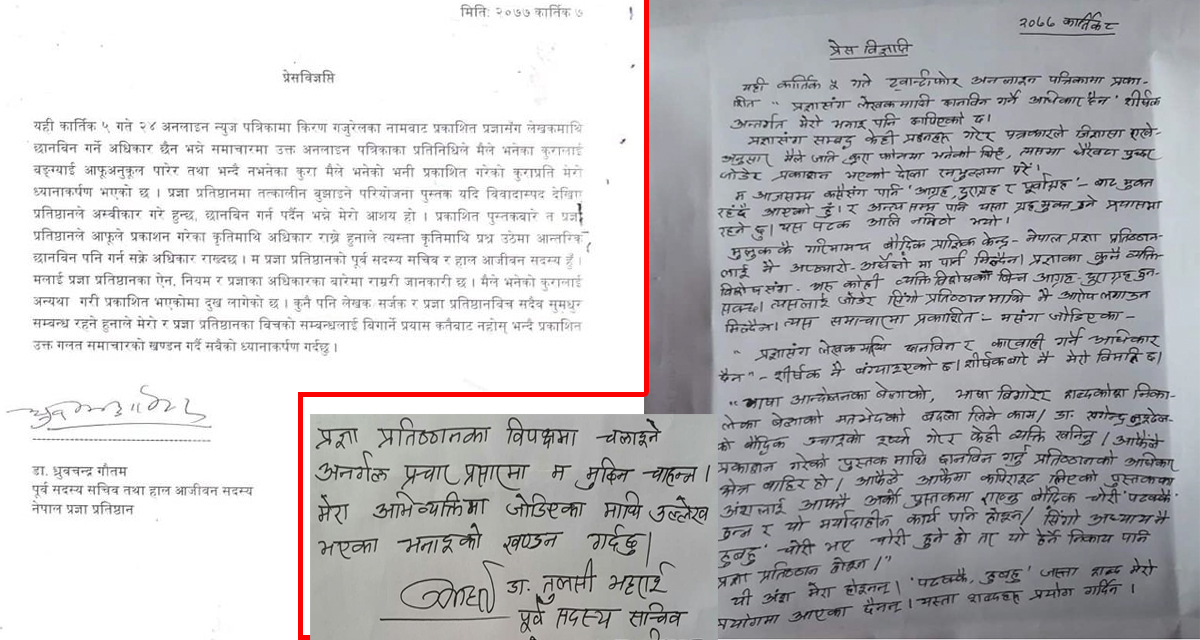 मिति: २०७७ कार्तिक ७
प्रेसविज्ञप्ति
यही कार्तिक ५ गते २४ अनलाइन न्युज पत्रिकामा किरण गजुरेलका नामबाट प्रकाशित प्रज्ञासँग लेखकमाथि
छानविन गर्ने अधिकार छैन भन्ने समाचारमा उक्त अनलाइन पत्रिकाका प्रतिनिधिले मैले भनेका कुरालाई
बङ्ग्याई आफूअनुकूल पारेर तथा भन्दै नभनेका कुरा मैले भनेको भनी प्रकाशित गरेको कुराप्रति मेरो
ध्यानाकर्षण भएको छ । प्रज्ञा प्रतिष्ठानमा तत्कालीन बुझाइने परियोजना पुस्तक यदि विवादास्पद देखिए
प्रतिष्ठानले अस्वीकार गरे हुन्छ, छानविन गर्न पर्दैन भन्ने मेरो आशय हो । प्रकाशित पुस्तकबारे त प्रज्ञा
प्रतिष्ठानले आफूले प्रकाशन गरेका कृतिमाथि अधिकार राख्ने हुनाले त्यस्ता कृतिमाथि प्रश्न उठेमा आन्तरिक
छानविन पनि गर्न सक्ने अधिकार राख्दछ । म प्रज्ञा प्रतिष्ठानको पूर्व सदस्य सचिव र हाल आजीवन सदस्य हुँ ।
मलाई प्रज्ञा प्रतिष्ठानका ऐन, नियम र प्रज्ञाका अधिकारका बारेमा राम्ररी जानकारी छ । मैले भनेको कुरालाई
अन्यथा गरी प्रकाशित भएकोमा दुख लागेको छ । कुनै पनि लेखक सर्जक र प्रज्ञा प्रतिष्ठानबिच सदैव सुमधुर
सम्बन्ध रहने हुनाले मेरो र प्रज्ञा प्रतिष्ठानका बिचको सम्बन्धलाई बिगार्ने प्रयास कतैबाट नहोस् भन्दै प्रकाशित
उक्त गलत समाचारको खण्डन गर्दै सबैको ध्यानाकर्षण गर्दछु ।
डा. ध्रुवचन्द्र गौतम
पूर्व सदस्य सचिव तथा हाल आजीवन सदस्य
नेपाल प्रज्ञा प्रतिष्ठान
२०७७ कार्तिक ८
प्रेस विज्ञप्ति
यही कार्तिक ५ गते ट्वान्टीफोर अनलाइन पत्रिकामा प्रका-
शित " प्रज्ञासंग लेखकमाथि छानविन गर्ने अधिकार छैन" शीर्षक
अन्तर्गत मेरो भनाइ पनि छापिएको छ।
प्रज्ञासंग सम्बद्ध केही प्रश्नहरू गरेर पत्रकारले जिज्ञासा राखे-
अनुसार मैले जति कुरा फोनमा भनेको थिएँ, त्यसमा धेरैवटा पुच्छर
जोडेर प्रकाशन भएको देख्दा रनभुल्लमा परें।
म आजसम्म कसैसंग पनि 'आग्रह, दुराग्रह र पूर्वाग्रह'– बाट मुक्त
रहँदै आएको हुँ। र अन्त्यसम्म पनि यस्ता ग्रहमुक्त हुने प्रयासमा
रहने छु। यस पटक अलि नमिठो भयो।
मुलुककै गरिमामय बौद्धिक प्राज्ञिक केन्द्र– नेपाल प्रज्ञा प्रतिष्ठान-
लाई नै अप्ठ्यारो– अचेलो मा पार्न मिल्दैन। प्रज्ञाका कुनै व्यक्ति-
विशेषसंग– अरू कोही व्यक्ति विशेषको भिन्न आग्रह– दुराग्रह हुन-
सक्छ। त्यसलाई जोडेर सिंगो प्रतिष्ठान माथि नै आरोप लगाउन
मिल्दैन। त्यस समाचारमा प्रकाशित– मसंग जोडिएका–
" प्रज्ञासंग लेखकमाथि छानविन र कारवाही गर्ने अधिकार
छैन"– शीर्षक नै बंग्याइएको छ। शीर्षकबारे नै मेरो विमति छ।
"भाषा आन्दोलनका बेलाको, भाषा विगारेर शब्दकोश निका-
लेका बेलाको मतभेदको बदला लिने काम/ डा. खगेन्द्र लुइटेल-
को बौद्धिक उचाइको इर्ष्या गरेर केही व्यक्ति खनिनु/ आफैंले
प्रकाशन गरेको पुस्तक माथि छानविन गर्नु प्रतिष्ठानको अधिकार
क्षेत्र बाहिर हो/ आफैंले आफैंमा कपिराइट लिएको पुस्तकका
अंशलाई आफ्नै अर्को पुस्तकमा राख्नु बौद्धिक चोरी 'पटक्कै'
हुन्न र यो मर्यादाहीन कार्य पनि होइन/ सिंगो अध्याय नै
'हुबहु' चोरी भए चोरी हुने हो तर यो हेर्ने निकाय पनि
प्रज्ञा प्रतिष्ठान होइन।"
यी अंश मेरा होइनन्। 'पटक्कै, हुबहु' जस्ता शब्द मेरो
प्रयोगमा आएका छैनन्। यस्ता शब्दहरू प्रयोग गर्दिन।
प्रज्ञा प्रतिष्ठानका विपक्षमा चलाइने
अनर्गल प्रचार प्रसारमा म मुछिन चाहन्न।
मेरा अभिव्यक्तिमा जोडिएका माथि उल्लेख
भएका भनाइको खण्डन गर्दछु।
डा. तुलसी भट्टराई
पूर्व सदस्य सचिव